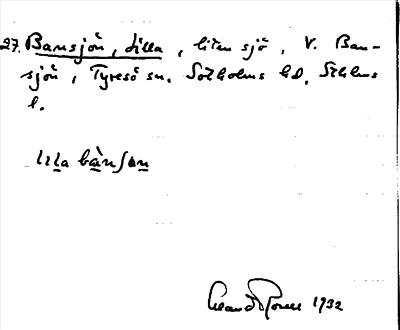 27. Bansjön, Lilla, liten sjö, V. Ban-
sjön, Tyresö sn. Sotholms hd, Sthlms
l.
lila bànsån
1932